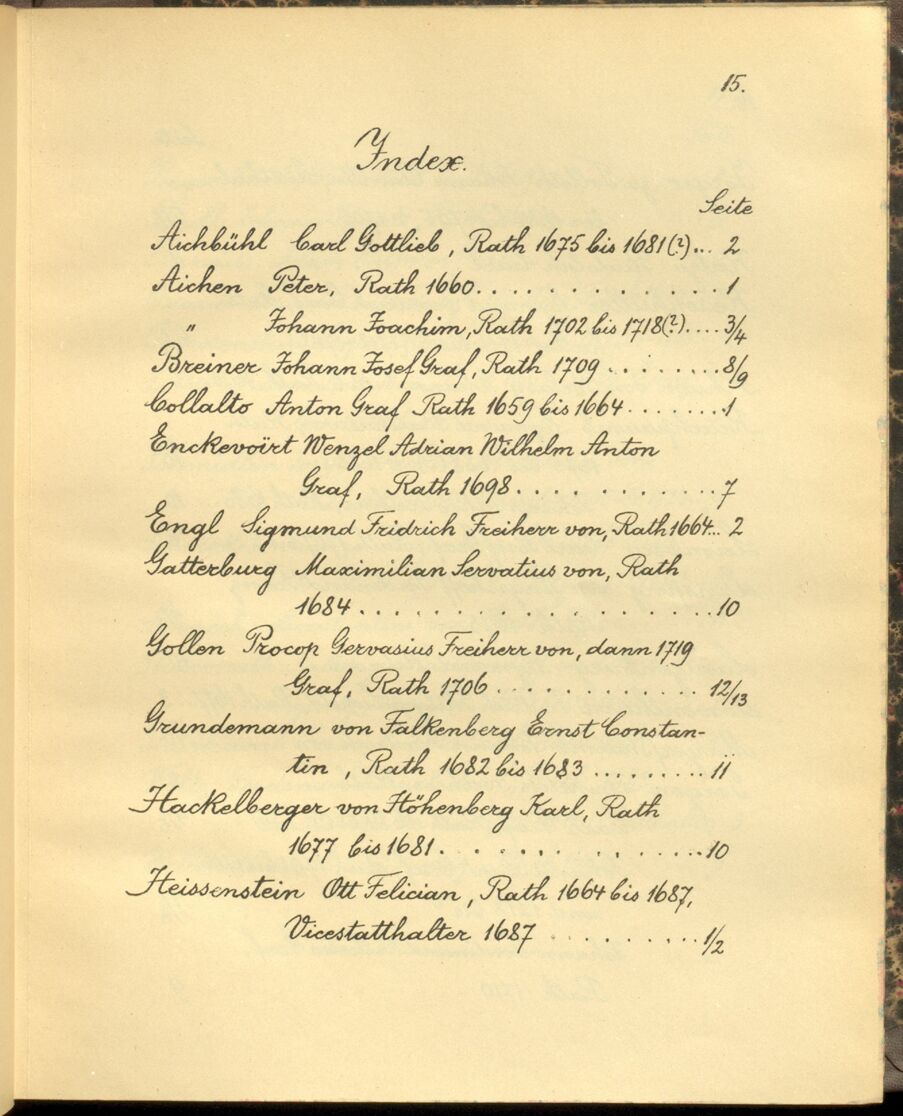 15.
Index.
Seite
Aichbühl Carl Gottlieb, Rath 1675 bis 1681(?)... 2
Aichen Peter, Rath 1660. . . . . . . . . . . . . 1
" Johann Joachim, Rath 1702 bis 1718(?). . . . 3/4
Breiner Johann Josef Graf, Rath 1709 . . . . . . . . 8/9
Collalto Anton Graf Rath 1659 bis 1664 . . . . . . . 1
Enckevoirt Wenzel Adrian Wilhelm Anton
Graf, Rath 1698. . . . . . . . . . . 7
Engl Sigmund Fridrich Freiherr von, Rath 1664... 2
Gatterburg Maximilian Servatius von, Rath
1684 . . . . . . . . . . . . . . . . . . 10
Gollen Procop Gervasius Freiherr von, dann 1719
Graf, Rath 1706 . . . . . . . . . . . . 12/13
Grundemann von Falkenberg Ernst Constan-
tin, Rath 1682 bis 1683 . . . . . . . . . 11
Hackelberger von Höhenberg Karl, Rath
1677 bis 1681. . . . . . . . . . . . . . . 10
Heissenstein Ott Felician, Rath 1664 bis 1687,
Vicestatthalter 1687 . . . . . . . . . . 1/2